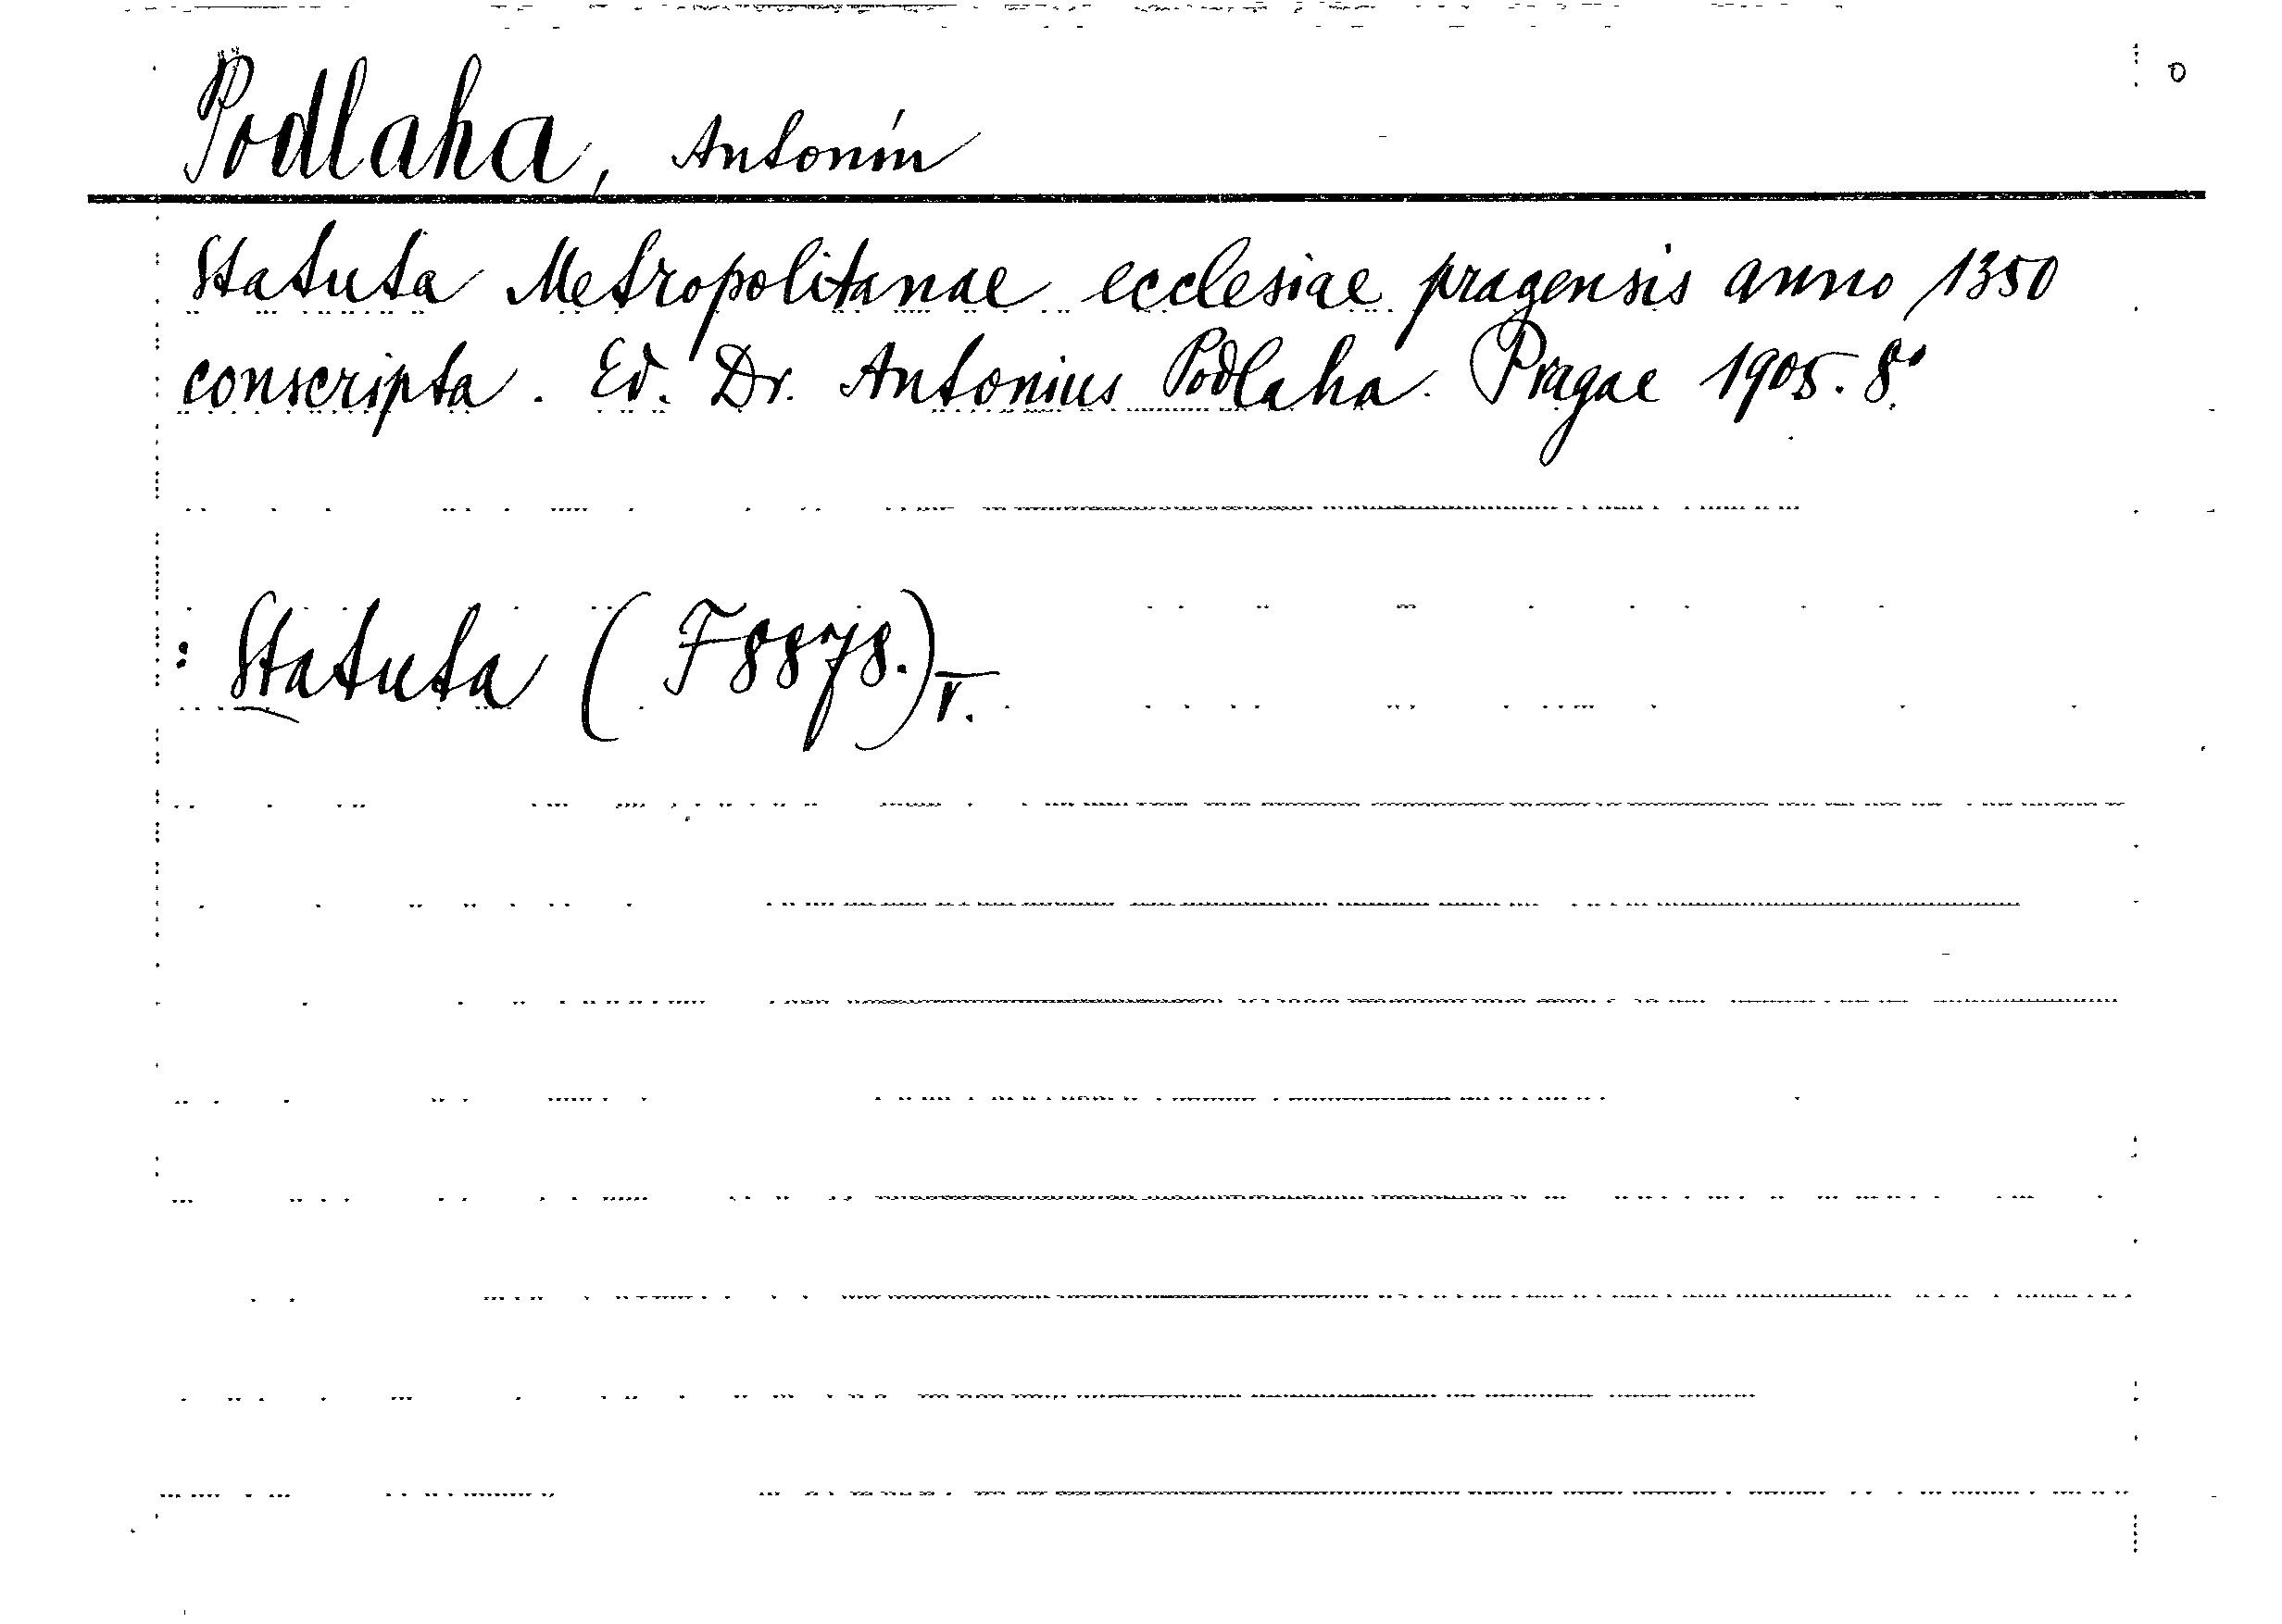 Podlaha, Antonín
Statuta Metropolitanae ecclesiae pragensis anno 1350
conscripta. Ed. Dr. Antonius Podlaha. Pragae 1905. 8°.
: Statuta (F8878.) V.